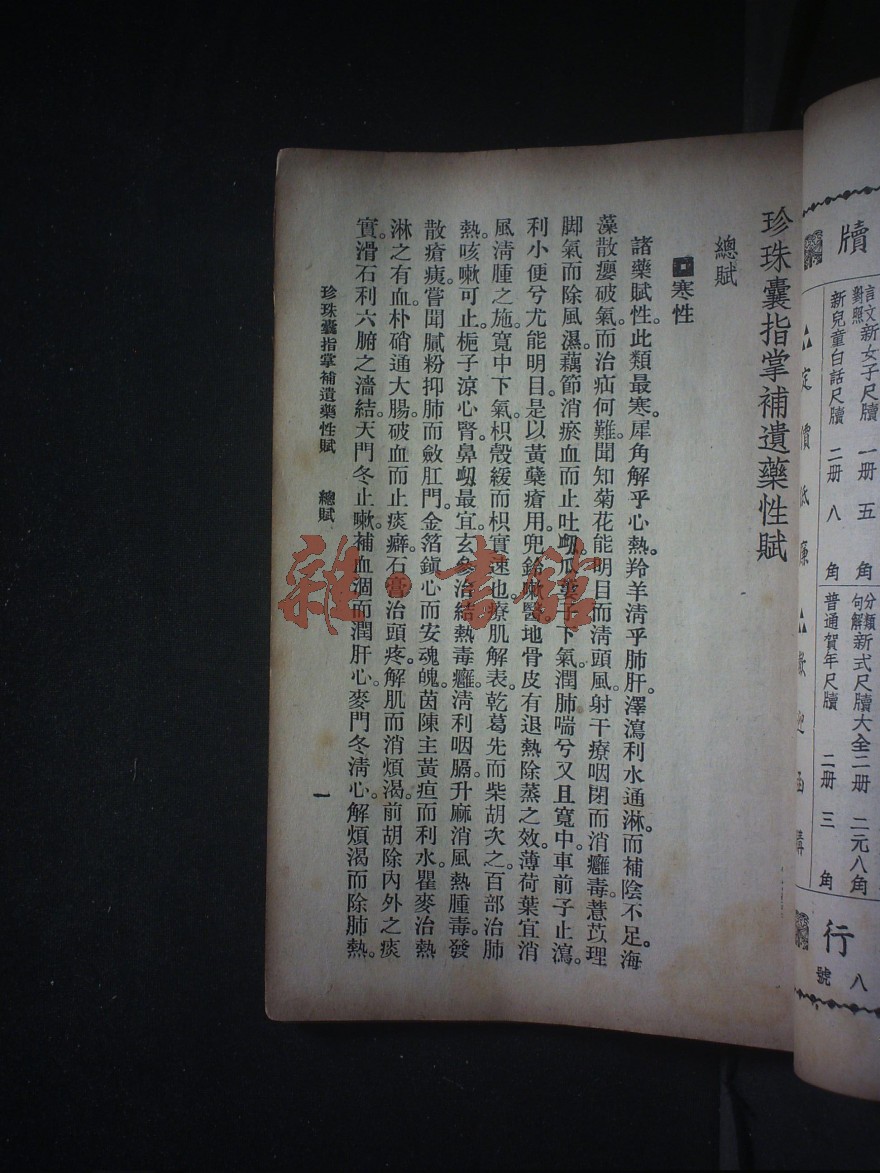 牘
言文對照新女子尺牘 一册 五角
新兒童白話尺牘 二册 八角
分類句解新式尺牘大全 二册 二元八角
普通賀年尺牘 二册 三角
行
八
號
珍珠囊指掌補遺藥性賦
總賦
寒性
諸藥賦性。此類最寒。犀角解乎心熱。羚羊清乎肺肝。澤瀉利水通淋。而補陰不足。海
藻散癭破氣。而治疝何難。聞知菊花能明目而清頭風。射干療咽閉而消癰毒。薏苡理
脚氣而除風濕。藕節消瘀血而止吐衂。瓜蔞子下氣。潤肺喘兮又且寬中。車前子止瀉。
利小便兮尤能明目。是以黃蘗瘡用。兜鈴嗽醫。地骨皮有退熱除蒸之效。薄荷葉宜消
風清腫之施。寬中下氣。枳殼緩而枳實速也。療肌解表。乾葛先而柴胡次之。百部治肺
熱。咳嗽可止。梔子涼心腎。鼻衂最宜。玄參治結熱毒癰。清利咽膈。升麻消風熱腫毒。發
散瘡痍。嘗聞膩粉抑肺而斂肛門。金箔鎮心而安魂魄。茵陳主黃疸而利水。瞿麥治熱
淋之有血。朴硝通大腸。破血而止痰癖。石膏治頭疼。解肌而消煩渴。前胡除內外之痰
實。滑石利六腑之濇結。天門冬止嗽。補血涸而潤肝心。麥門冬清心。解煩渴而除肺熱。
珍珠囊指掌補遺藥性賦 總賦
一
雜·書館